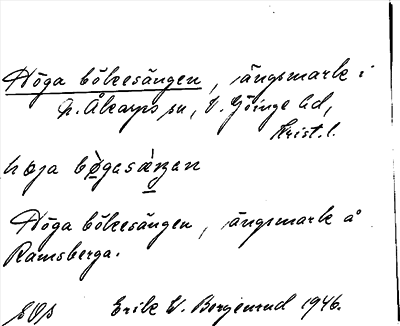 Höga bökesängen, ängsmark i
N. Åkarps sn, V. Göinge hd,
Krist. l.
höga bökesängen, ängsmark å
Ramsberga.
Erik W. Bergenrud 1946.